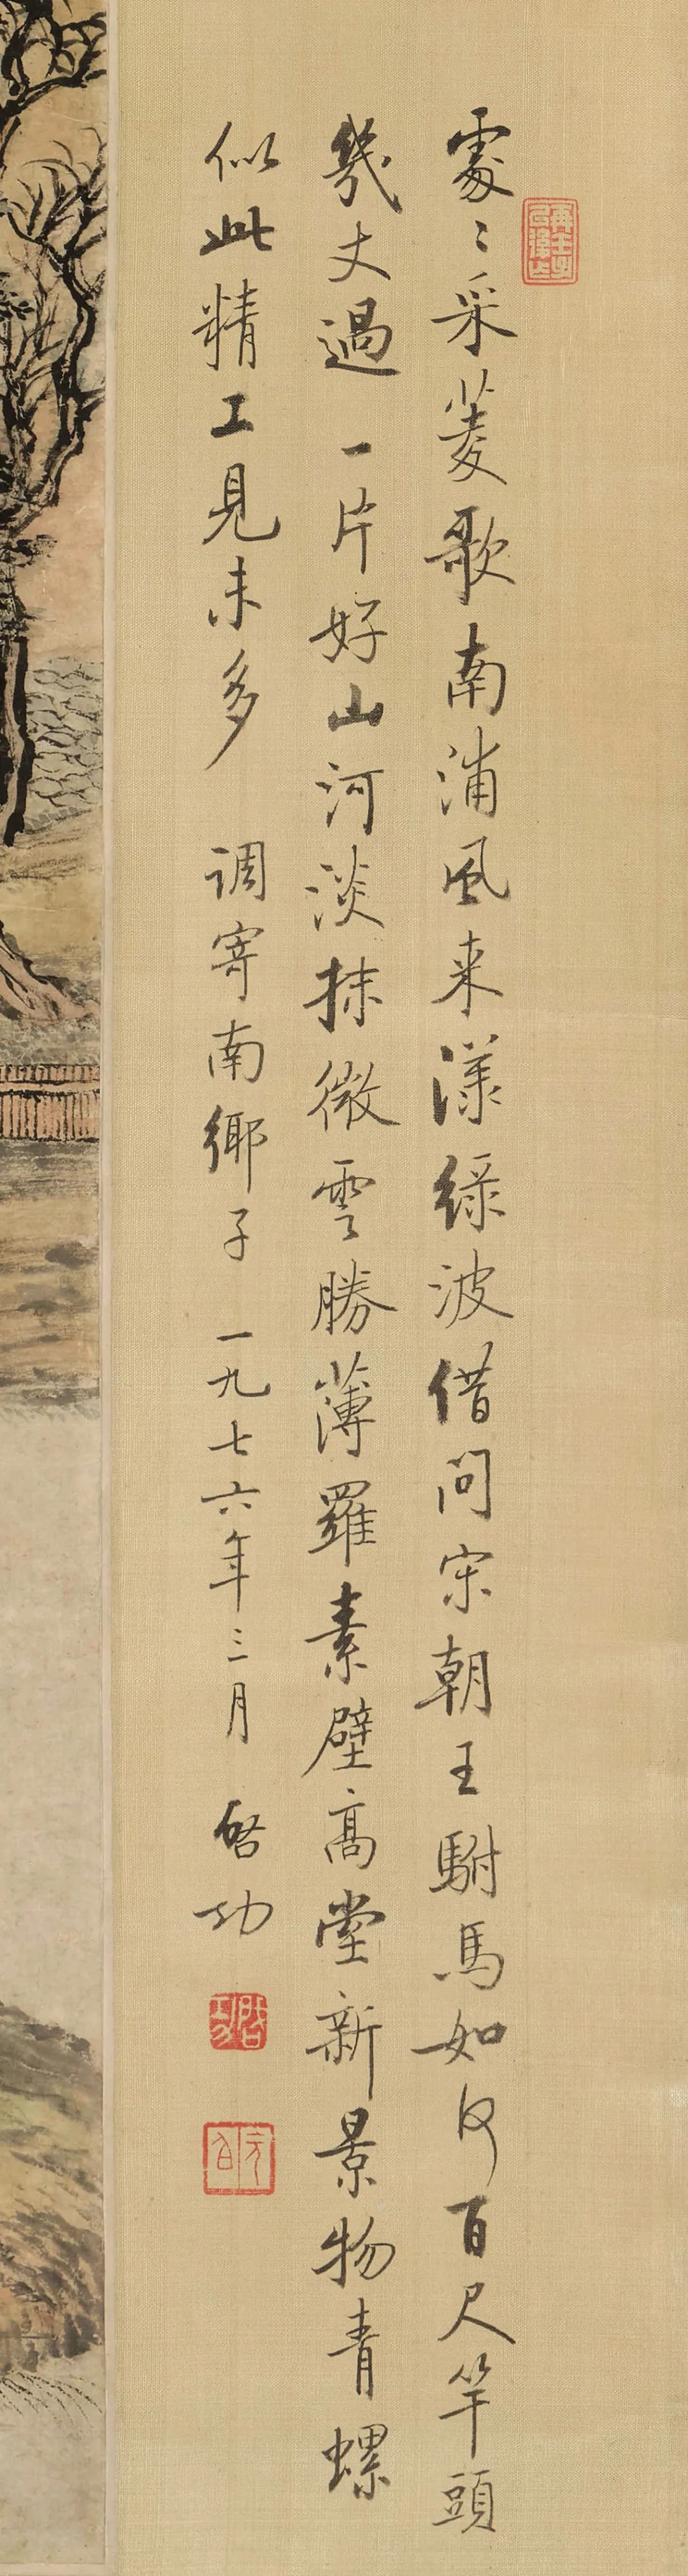 處〻采菱歌南浦風来漾綠波借問宋朝王駙馬如何百尺竿頭
幾丈過一片好山河淡抹微雲勝薄羅素壁高堂新景物青螺
似此精工見未多　调寄南鄉子　一九七六年三月　啓功
啓功
元白